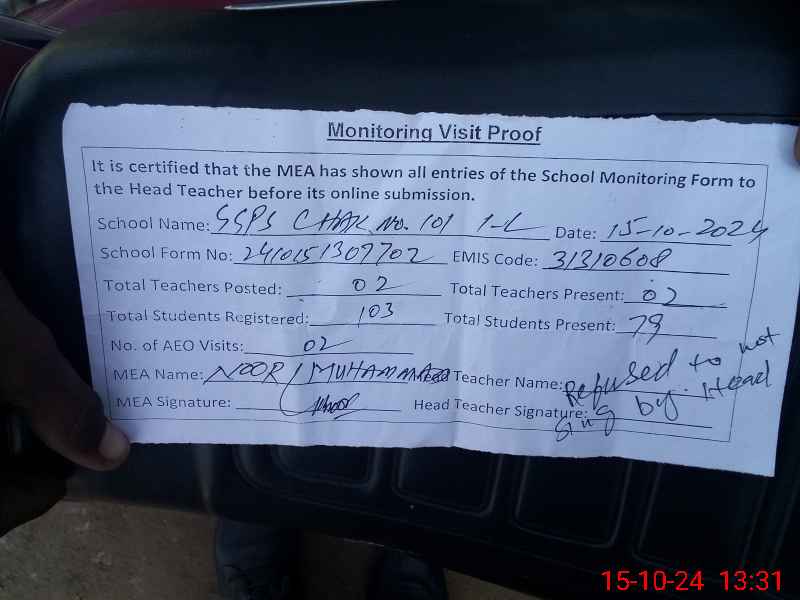 Monitoring Visit Proof
It is certified that the MEA has shown all entries of the School Monitoring Form to
the Head Teacher before its online submission.
School Name: SSPS CHAK No. 101 1-L Date: 15-10-2024
School Form No: 2410151309702 EMIS Code: 31310608
Total Teachers Posted: 02 Total Teachers Present: 02
Total Students Registered: 103 Total Students Present: 79
No. of AEO Visits: 02
MEA Name: NOOR MUHAMMAD Teacher Name: Refused to not
MEA Signature: Head Teacher Signature: sing by. Head
15-10-24 13:31